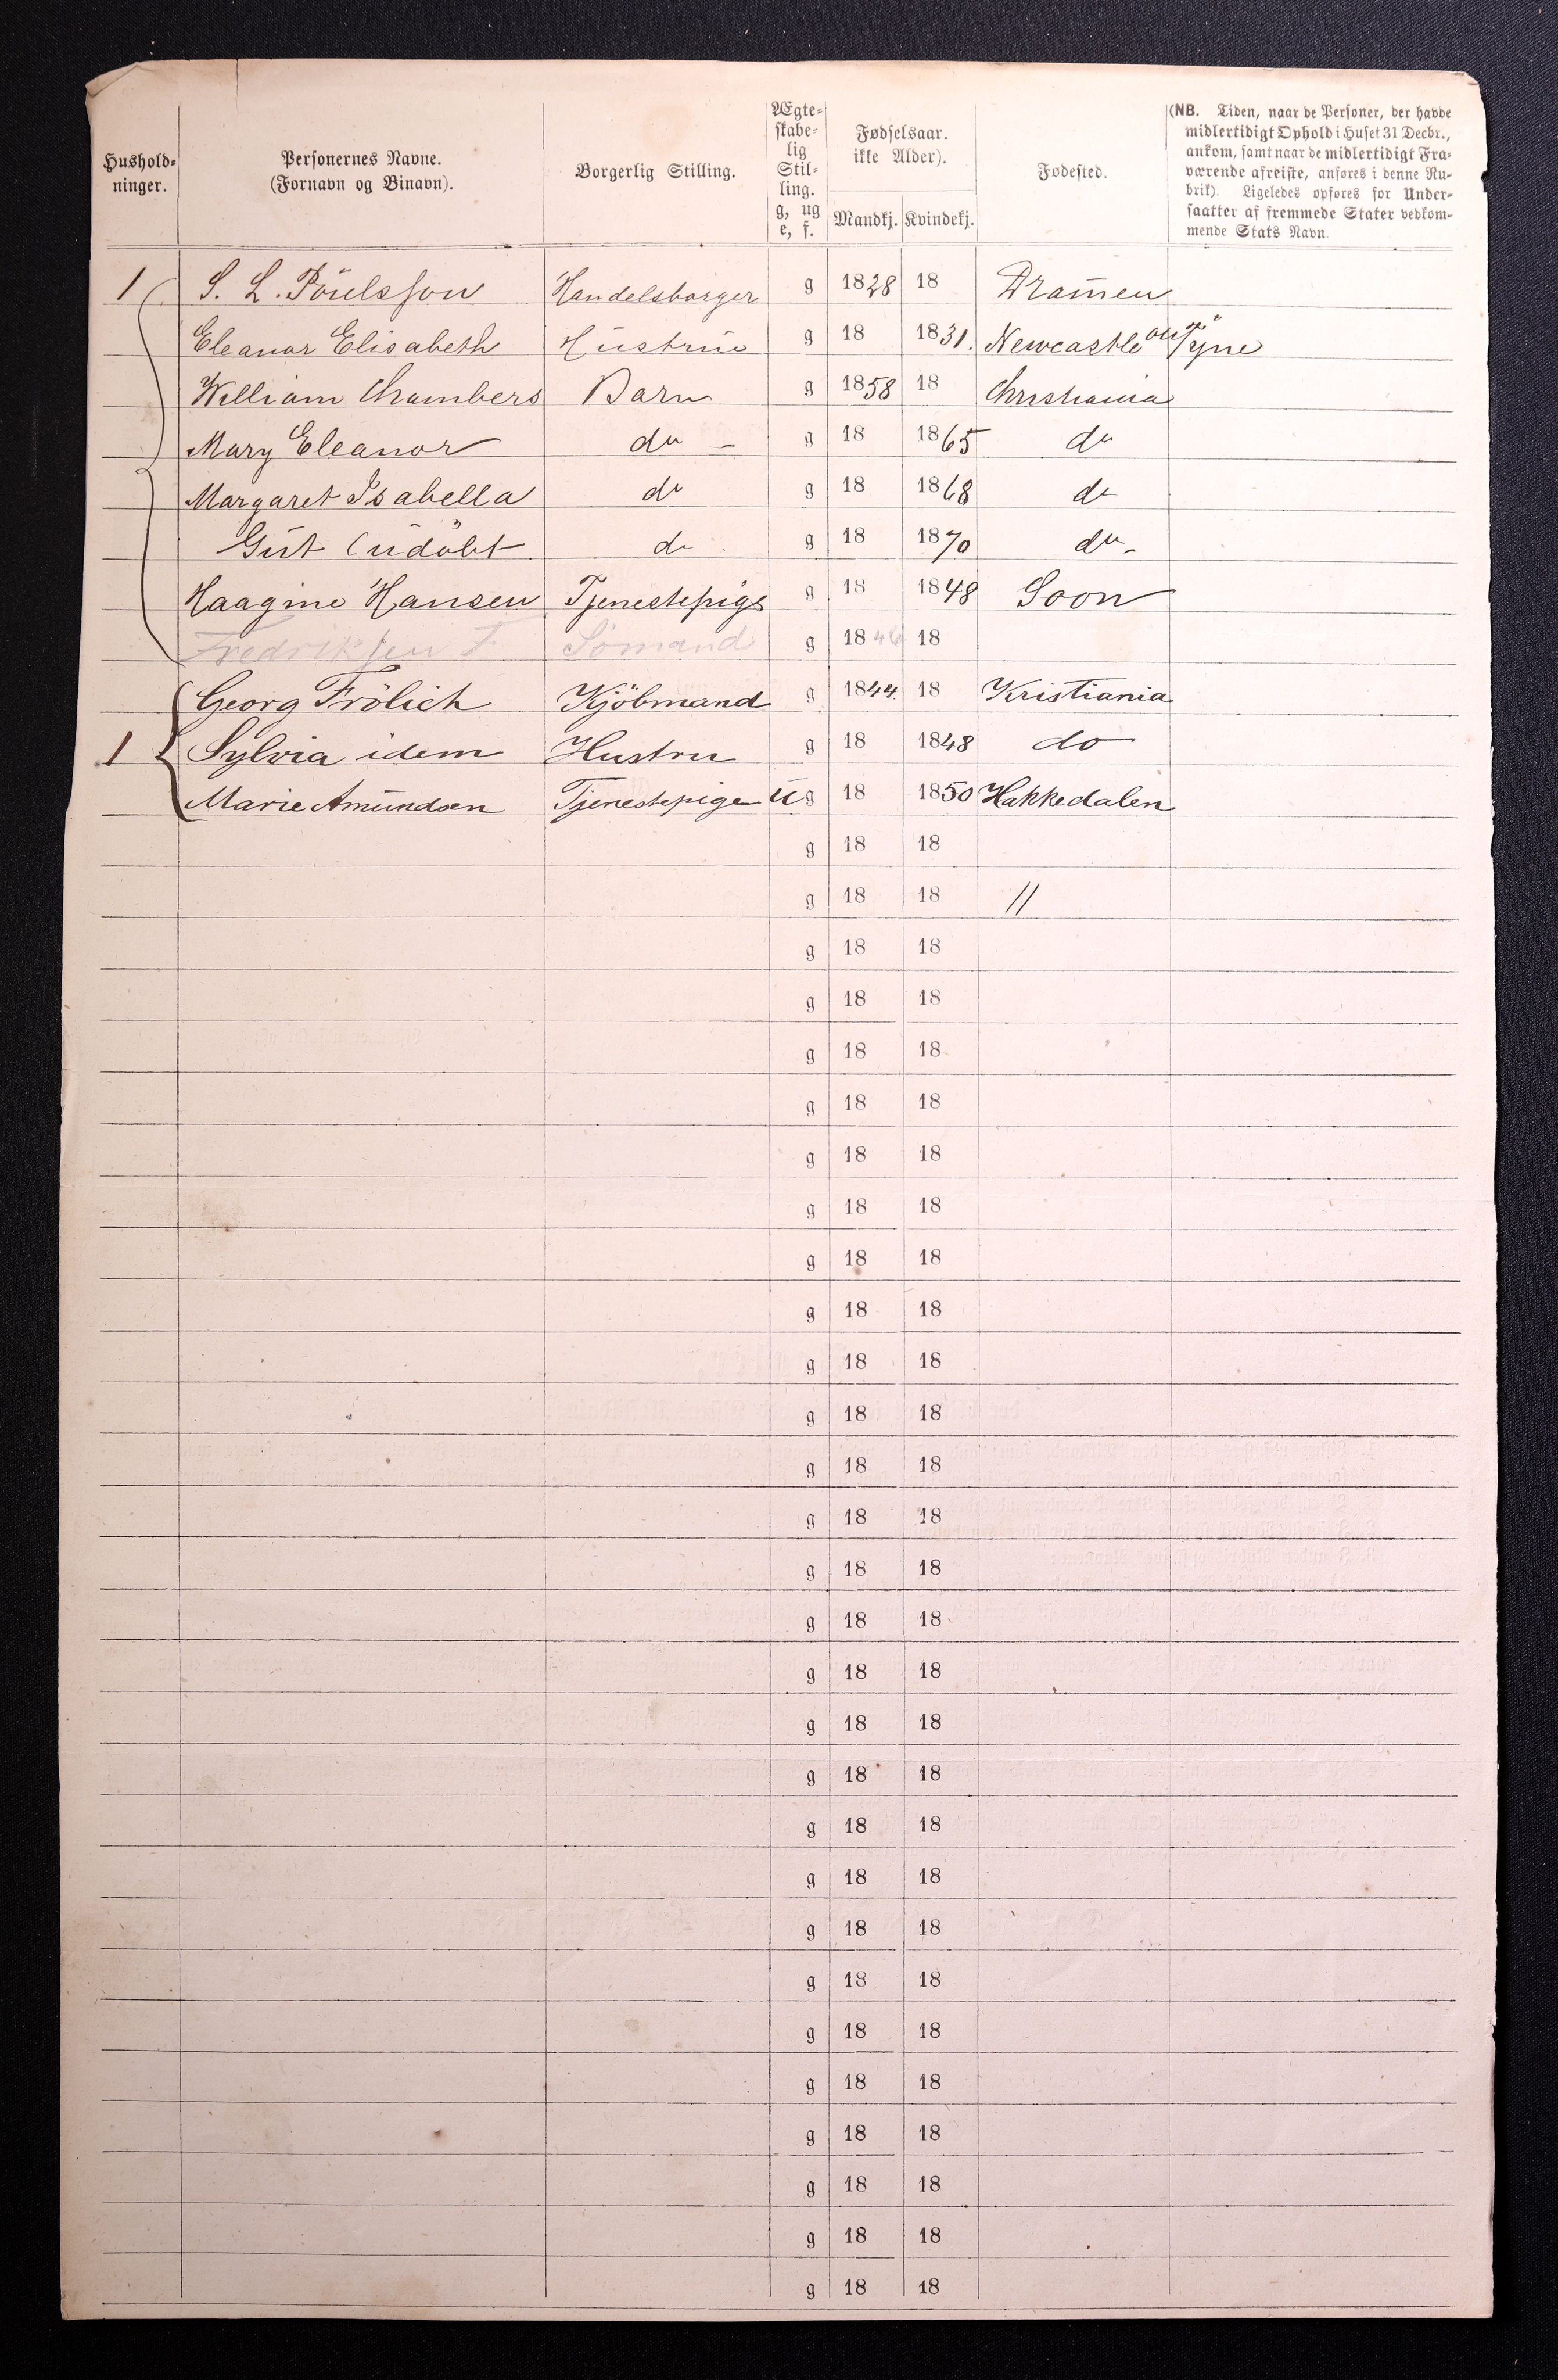 Hushold-
ninger.
Personernes Navne.
(Fornavn og Binavn).
Borgerlig Stilling.
Ægte-
skabe-
lig
Stil-
ling.
g, ug
e, f.
Fødselsaar.
ikke Alder).
Mandkj. Kvindekj.
Fødested.
(NB. Tiden, naar de Personer, der havde
midlertidigt Ophold i Huset 31 Decbr.,
ankom, samt naar de midlertidigt Fra-
værende afreiste, anføres i denne Ru-
brik). Ligeledes opføres for Under-
saatter af fremmede Stater vedkom-
mende Stats Navn.
1 S. L. Poulsson Handelsborger g 1828 18 Dramen
Eleanor Elisabeth Hustrue g 18 1831. Newcastle on Tyne
William Chambers Barn g 1858 18 Christiania
Mary Eleanor do - g 18 1865 do
Margaret Isabella do g 18 1868 do
Gut Cudöbt do g 18 1870 do -
Haagine Hansen Tjenestepige g 18 1848 Soon
Fredriksen F Sömand g 1846 18
Georg Frölich Kjöbmand g 1844 18 Kristiania
1 Sylvia idem Hustru g 18 1848 do
Marie Amundsen Tjenestepige ug 18 1850 Hakkedalen
g 18 18
g 18 18 //
g 18 18
g 18 18
g 18 18
g 18 18
g 18 18
g 18 18
g 18 18
g 18 18
g 18 18
g 18 18
g 18 18
g 18 18
g 18 18
g 18 18
g 18 18
g 18 18
g 18 18
g 18 18
g 18 18
g 18 18
g 18 18
g 18 18
g 18 18
g 18 18
g 18 18
g 18 18
g 18 18